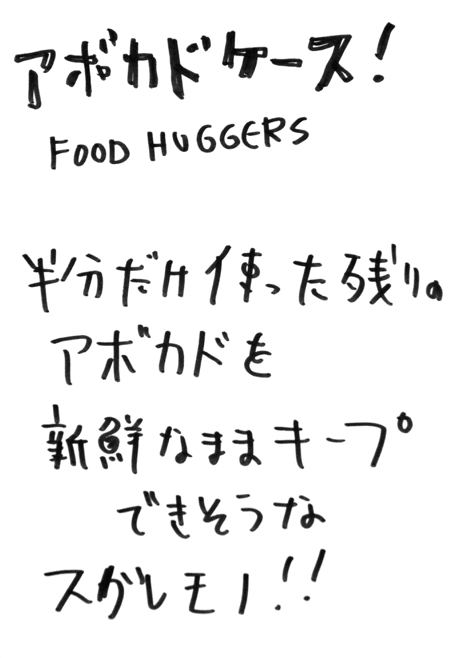 アボカドケース!
FOOD HUGGERS
半分だけ使った残りの
アボカドを
新鮮なままキープ
できそうな
スグレモノ!!